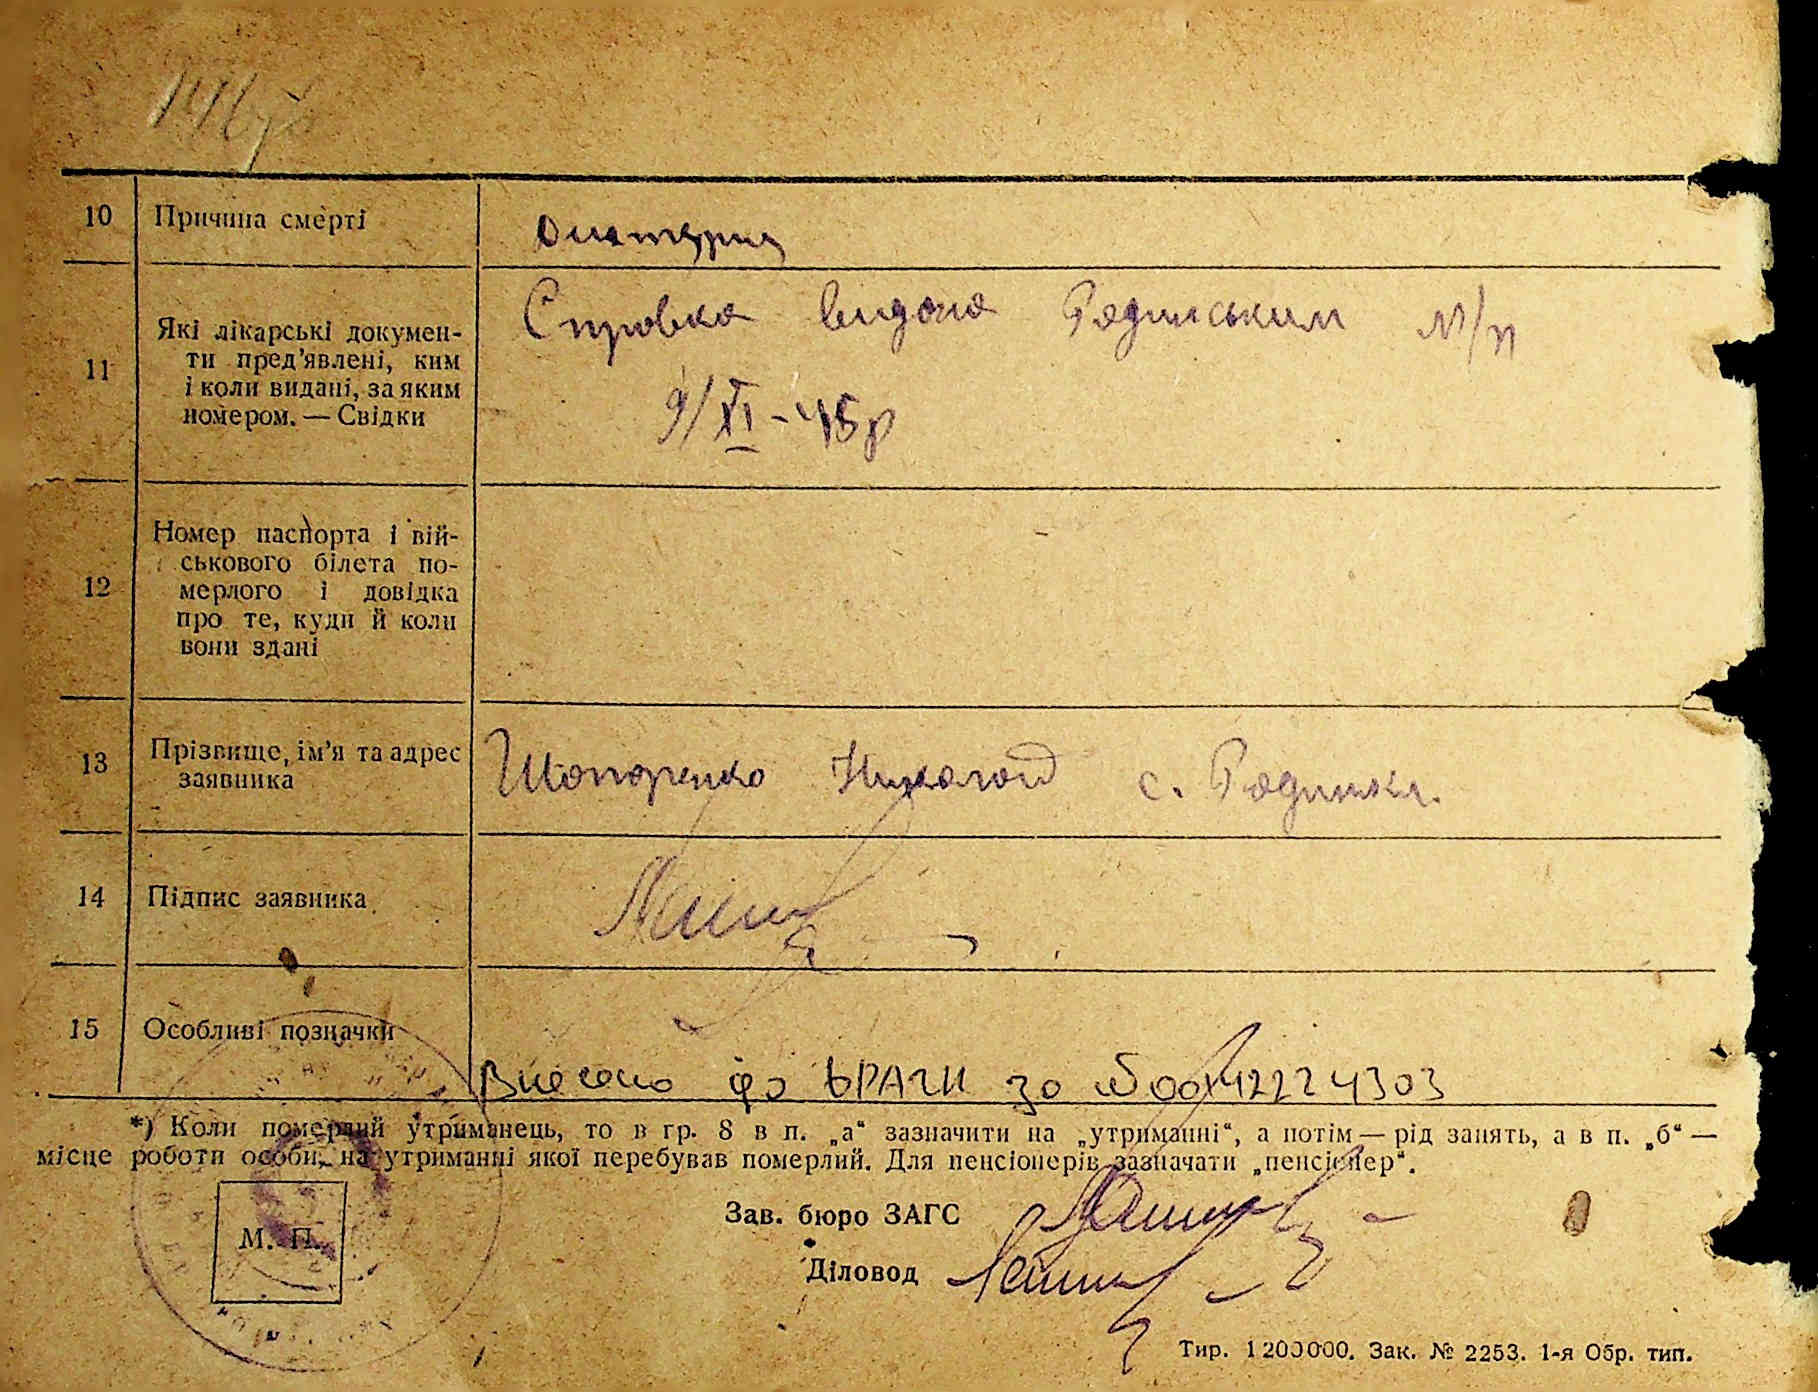 10 Причина смерті
Дифтерия
11 Які лікарські докумен-
ти пред'явлені, ким
і коли видані, за яким
номером. — Свідки
Справка видана м/п
9/XI-45р
12 Номер паспорта і вій-
ськового білета по-
мерлого і довідка
про те, куди й коли
вони здані
13 Прізвище, ім'я та адрес
заявника
Шапоренко Николай с.
14 Підпис заявника
15 Особливі позначки
Внесено до ДРАЦГ за №00142224303
*) Коли померлий утриманець, то в гр. 8 в п. „а“ зазначити на „утриманні“, а потім — рід занять, а в п. „б“ —
місце роботи особи, на утриманні якої перебував померлий. Для пенсіонерів зазначати „пенсіонер“.
Зав. бюро ЗАГС
М. П.
Діловод
Тир. 1200000. Зак. № 2253. 1-я Обр. тип.